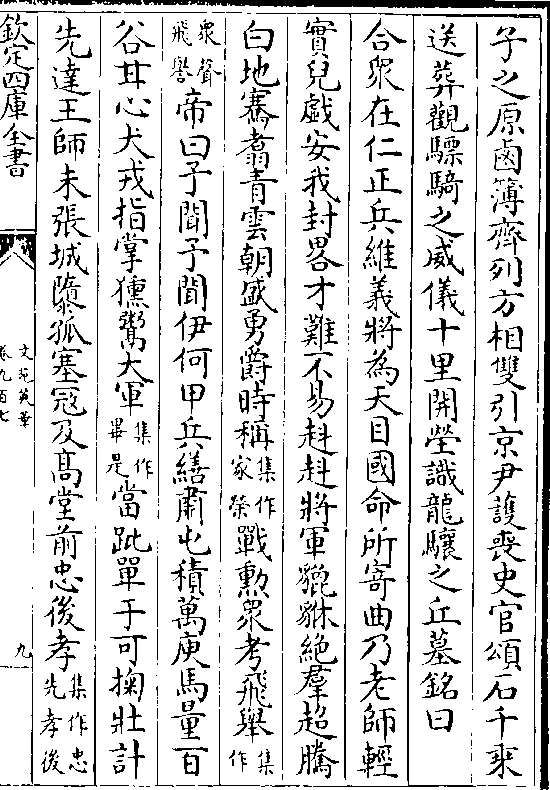 子之原鹵簿齊列方相雙引京尹護喪史官頌石千乘
送葬觀驃騎之威儀十里開塋識龍驤之丘墓銘曰
合衆在仁正兵維義將為天目國命所寄曲乃老師輕
實兒戲安我封畧才難不易赳赳將軍貔貅絶羣超騰
白地騫翥青雲朝盛勇爵時稱集作家榮戰勲衆考飛舉集作
衆聲飛譽帝曰予聞予聞伊何甲兵繕肅屯積萬庾馬量百
谷甘心犬戎指掌獯鬻大軍集作畢是當跐單于可掬壯計
先達王師未張城隳孤塞寇及髙堂前忠後孝集作忠先孝後
欽定四庫全書
文苑英華
卷九百七
九